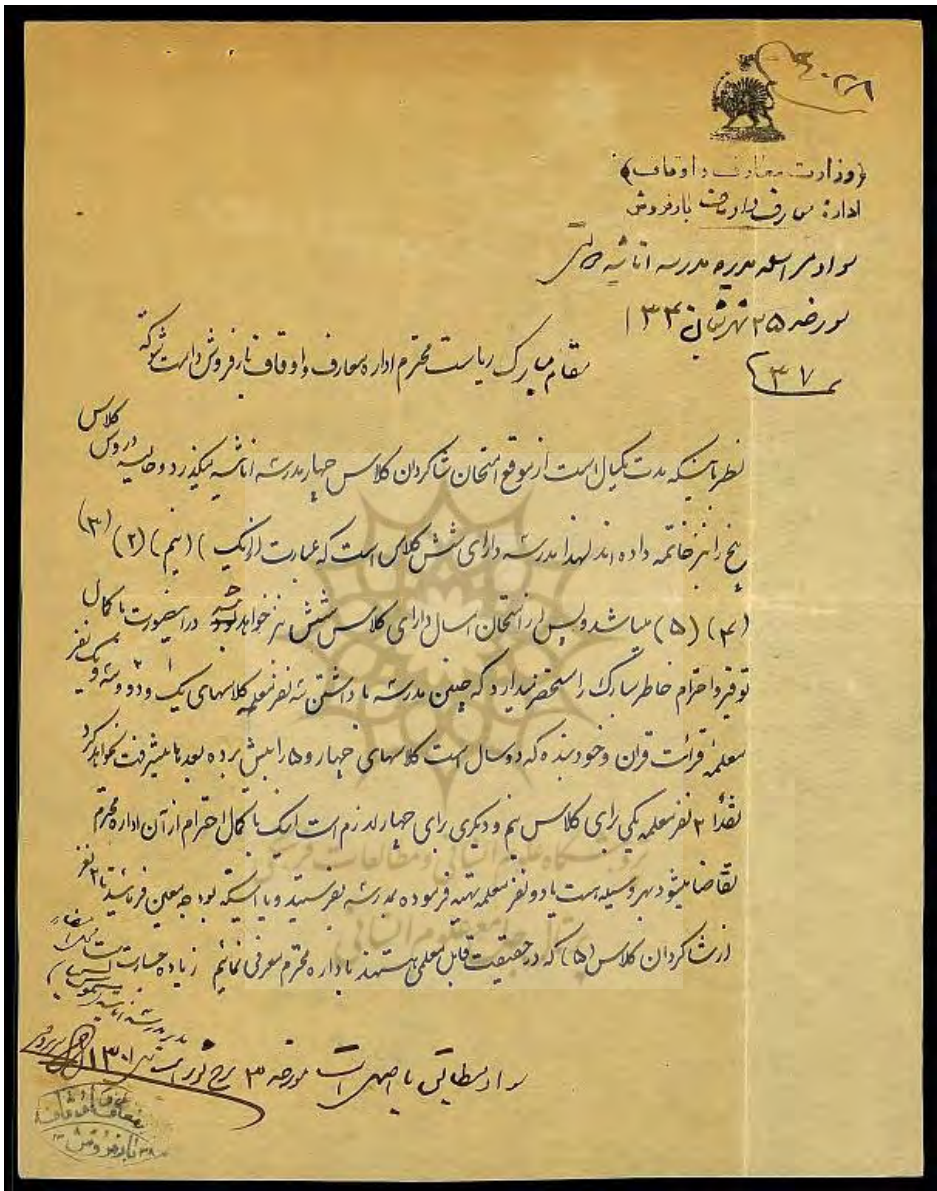 ﴿وزارت معارف و اوقاف﴾
ادارهٔ معارف بارفروش
سواد مراسله مدیره مدرسه اناثیه دولتی
مورخه ۲۵ شهر شعبان ۱۳۴۰
نمره ۳۷
مقام مبارک ریاست محترم اداره معارف و اوقاف بارفروش دامت شوکته
نظر باینکه مدت یکسال است از موقع امتحان شاگردان کلاس چهار مدرسه اناثیه میگذرد و حالیه دروس کلاس
پنج را نیز خاتمه داده اند لهذا مدرسه دارای شش کلاس است که عبارت از (یک) (نیم) (۲) (۳)
(۴) (۵) میباشد و پس از امتحان امسال دارای کلاس شش نیز خواهد شد در اینصورت با کمال
توقیر و احترام خاطر مبارک را مستحضر میدارد که چنین مدرسه با داشتن سه نفر معلمه کلاسهای یک و دو و سه و یک نفر
معلمه قرائت قران و خود بنده که دو سال است کلاسهای چهار و ۵ را پیش برده بعدها پیشرفت نخواهد کرد
نقداً ۲ نفر معلمه یکی برای کلاس نیم و دیگری برای چهار لازم است اینک با کمال احترام از آن اداره محترم
تقاضا میشود بهر وسیله هست یا دو نفر معلمه تهیه فرموده بمدرسه بفرستید و یا اینکه بودجه معین فرمائید تا ۲ نفر
از شاگردان کلاس (۵) که در حقیقت قابل معلمی هستند باداره محترم معرفی نمائیم زیاده جسارت است محل امضاء
مدیره مدرسه اناثیه
سواد مطابق با اصل است مورخه ۳ برج ثور ۱۳۰۱
پژوهشگاه علوم انسانی و مطالعات فرهنگی
پرتال جامع علوم انسانی